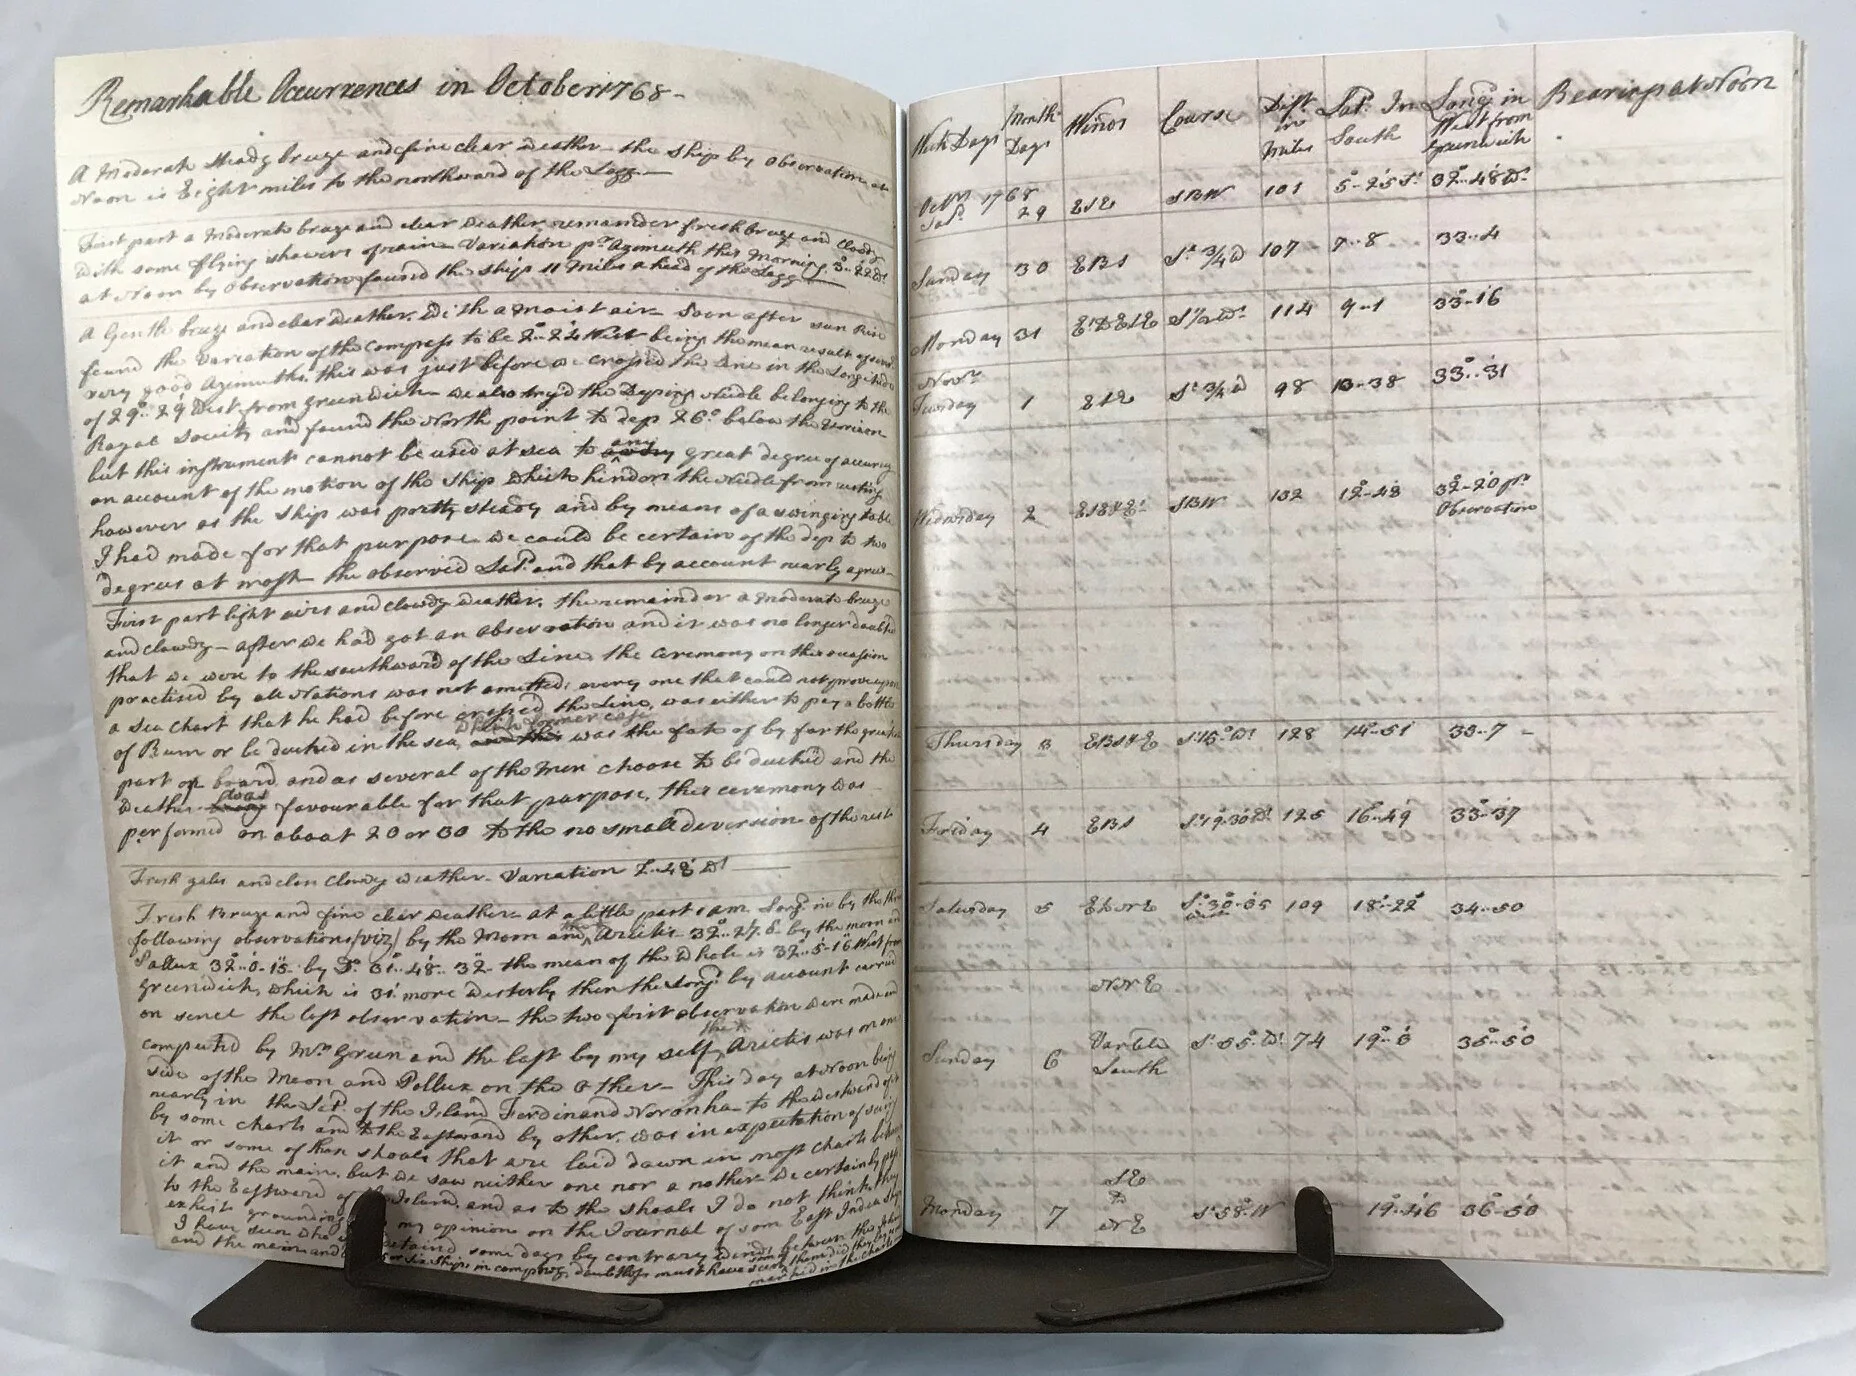 Remarkable Occurrences in October 1768 -
A Moderate steady breeze and fine clear Weather - the Ship by Observation at
Noon is Eight miles to the northward of the Logg. -
First part a Moderate breeze and clear Weather, remainder fresh breeze and Cloudy
With some flying showers of rain - Variation pr. Azimuth this Morning 3°..22' Wt
at Noon by Observation found the ship 11 Miles a head of the Logg
A Gentle breeze and clear Weather. With a Moist air - Soon after Sun Rise
found the Variation of the Compass to be 2°..24' West being the mean result of several
very good Azimuths, this was just before we crossed the Line in the Longitude
of 29°..29' West from greenwich - We also try'd the Diping Needle belonging to the
Royal Society and found the North point to dep 26° below the Horizon
but this instrument cannot be used at sea to any great degree of accuracy
on account of the motion of the Ship Which hinders the Needle from resting
however as the Ship was pretty steady and by means of a swinging table
I had made for that purpose we could be certain of the dep to two
degrees at most - the observed Lat. and that by account nearly agree -
First part light airs and clowdy Weather, the remainder a Moderate breeze
and clowdy - after we had got an observation and it was no longer doubted
that we were to the southward of the Line, the ceremony on this occasion
practised by all Nations was not omitted: every one that could not prove upon
a Sea Chart that he had before crossed the Line, was either to pay a bottle
Which former case
of Rum or be ducked in the sea, was the fate of by far the greatest
part on board, and as several of the Men choose to be ducked and the
Weather was favourable for that purpose, this ceremony was
performed on about 20 or 30 to the no small diversion of the rest
Fresh gales and Clowdy weather - Variation 2..48' Wt
Fresh Breeze and fine clear Weather at a little past 1 am Longd. in by the three
following observations (viz) by the Moon and the Star Arietis 32°..27'.0 - by the moon and
Pollux 32°..0'-15" by Do. 31°..48'..32" the mean of the Whole is 32°..5'-16" West from
Greenwich, Which is 31' more Westerly than the Longd. by account carried
on sence the last observation - the two first observation were made and
computed by Mr. Green and the last by my self, the Star Arietis was on one
side of the Moon and Pollux on the other - This day at Noon being
nearly in the Lat. of the Island Ferdinand Noronha to the Westward of it
by some charts and to the Eastward by other, was in expectation of seeing
it or some of those shoals that are laid down in most charts between
it and the main, but we saw neither one nor a nother. We certainly pass'd
to the Eastward of the Island, and as to the shoals I do not think they
exhist grounding my opinion on the Journal of som East India Ships
I have seen who were detaind some days by contrary winds between this Island
and the main and 5 or six Ships in company, doubtless must have seen some of them did they lay as
marked in the Charts
Week Days Month Days Winds Course Distce. in Miles Lat. In South Longd. in West from Greenwich Bearings at Noon
Octr. 1768
Satd. 29 ESE SBW 101 5°-25' St. 32°..48' Wt.
Sunday 30 EBS St. 3/4 W 107 7..8 33..4
Monday 31 Et to ESE S 1/2 Wt. 114 9-1 33°-16
Novr.
Tuesday 1 ESE St. 3/4 W 98 10-38 33°..31
Wednesday 2 ESE & Et. SBW 132 12°-48 32°-20' pr.
Observation
Thursday 3 EBS & E St. 15° Wt. 128 14°-51' 33-7 -
Friday 4 EBS St. 19°-30' Wt. 125 16-49 33°-37
Saturday 5 Ebor E St. 30°-35'
West 109 18°-22' 34..50
Sunday 6 NNE
Varble
South St. 55° Wt. 74 19°-3' 35°..50
Monday 7 SE
to
NE St. 58° W 19°..46 36°-50'